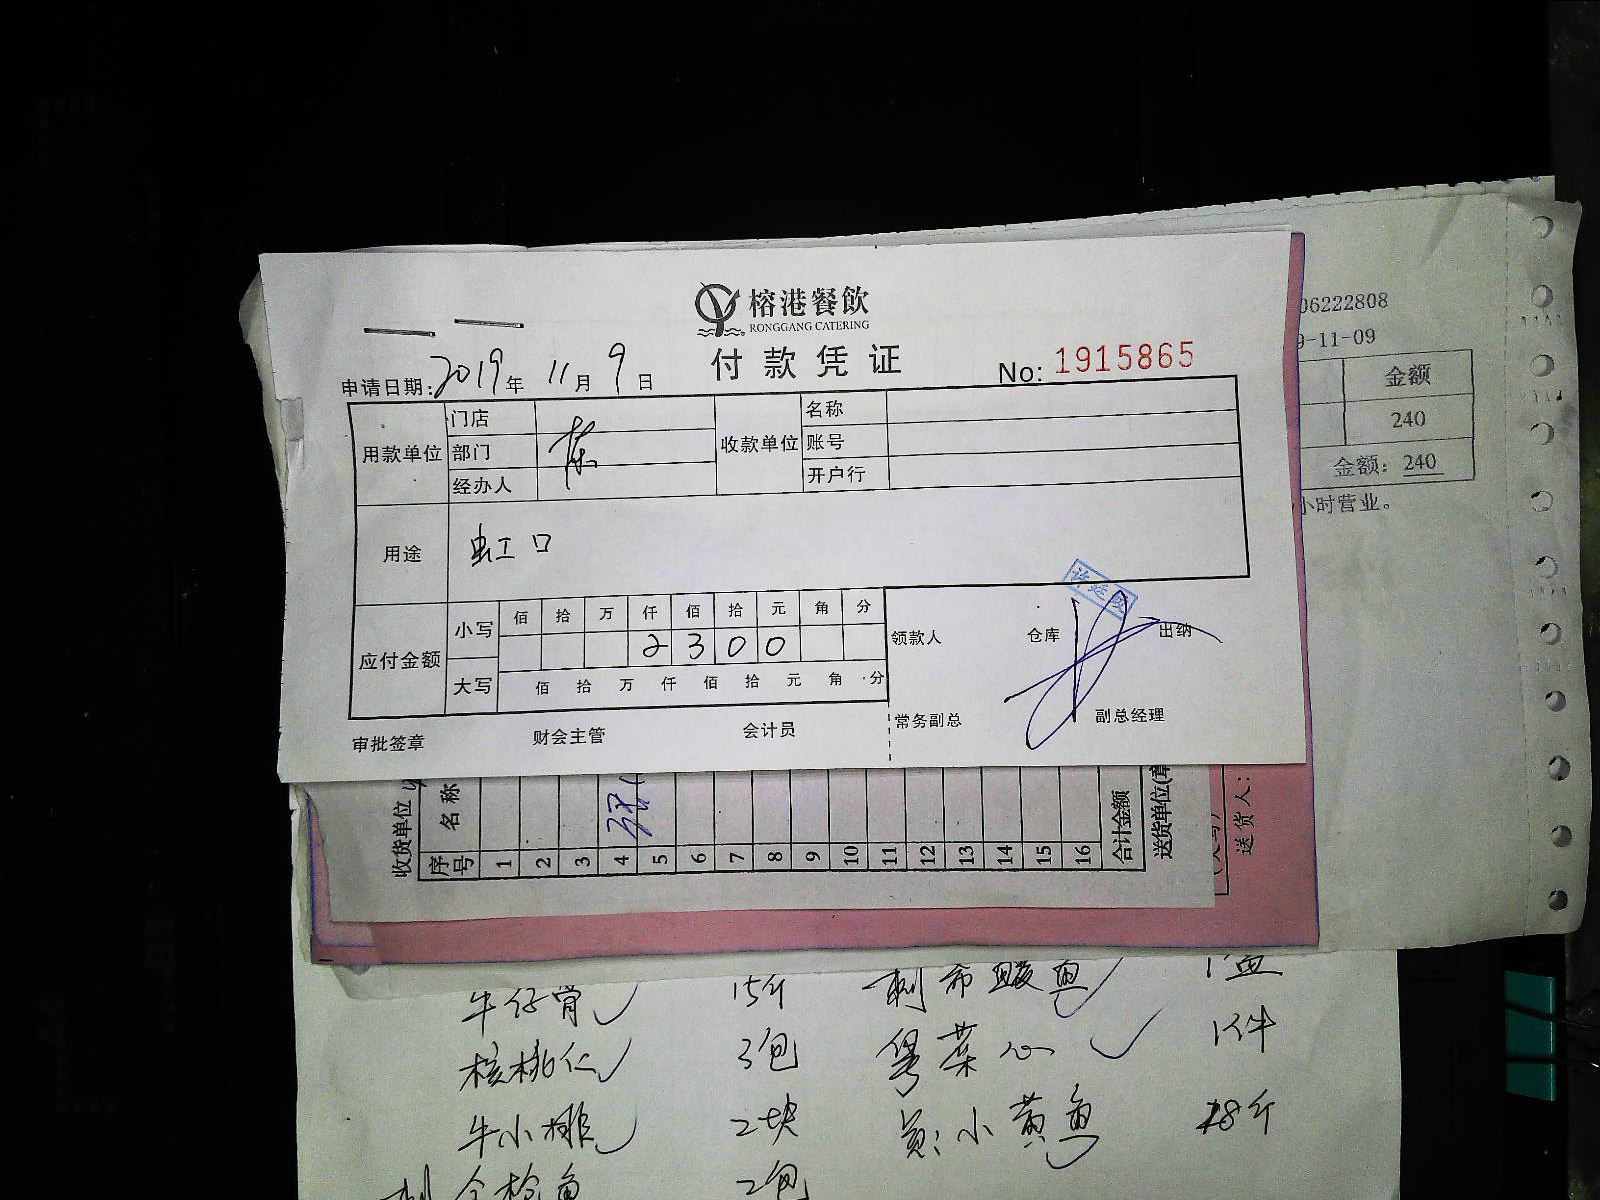 榕港餐飲
RONGGANG CATERING
付款凭证
No: 1915865
申请日期: 2019年 11月 9日
用款单位 门店 收款单位 名称
部门 账号
经办人 开户行
用途 虹口
应付金额 小写 佰 拾 万 仟 佰 拾 元 角 分
2 3 0 0
大写 佰 拾 万 仟 佰 拾 元 角 分
领款人 仓库 出纳
常务副总 副总经理
审批签章 财会主管 会计员
06222808
9-11-09
金额
240
金额: 240
小时营业。
收货单位
名称
序号 1 2 3 4 5 6 7 8 9 10 11 12 13 14 15 16 合计金额
送货单位(章
送货人:
牛仔骨 15斤
核桃仁 3包 菜心 1件
牛小排 2块 小黄鱼 18斤
2包